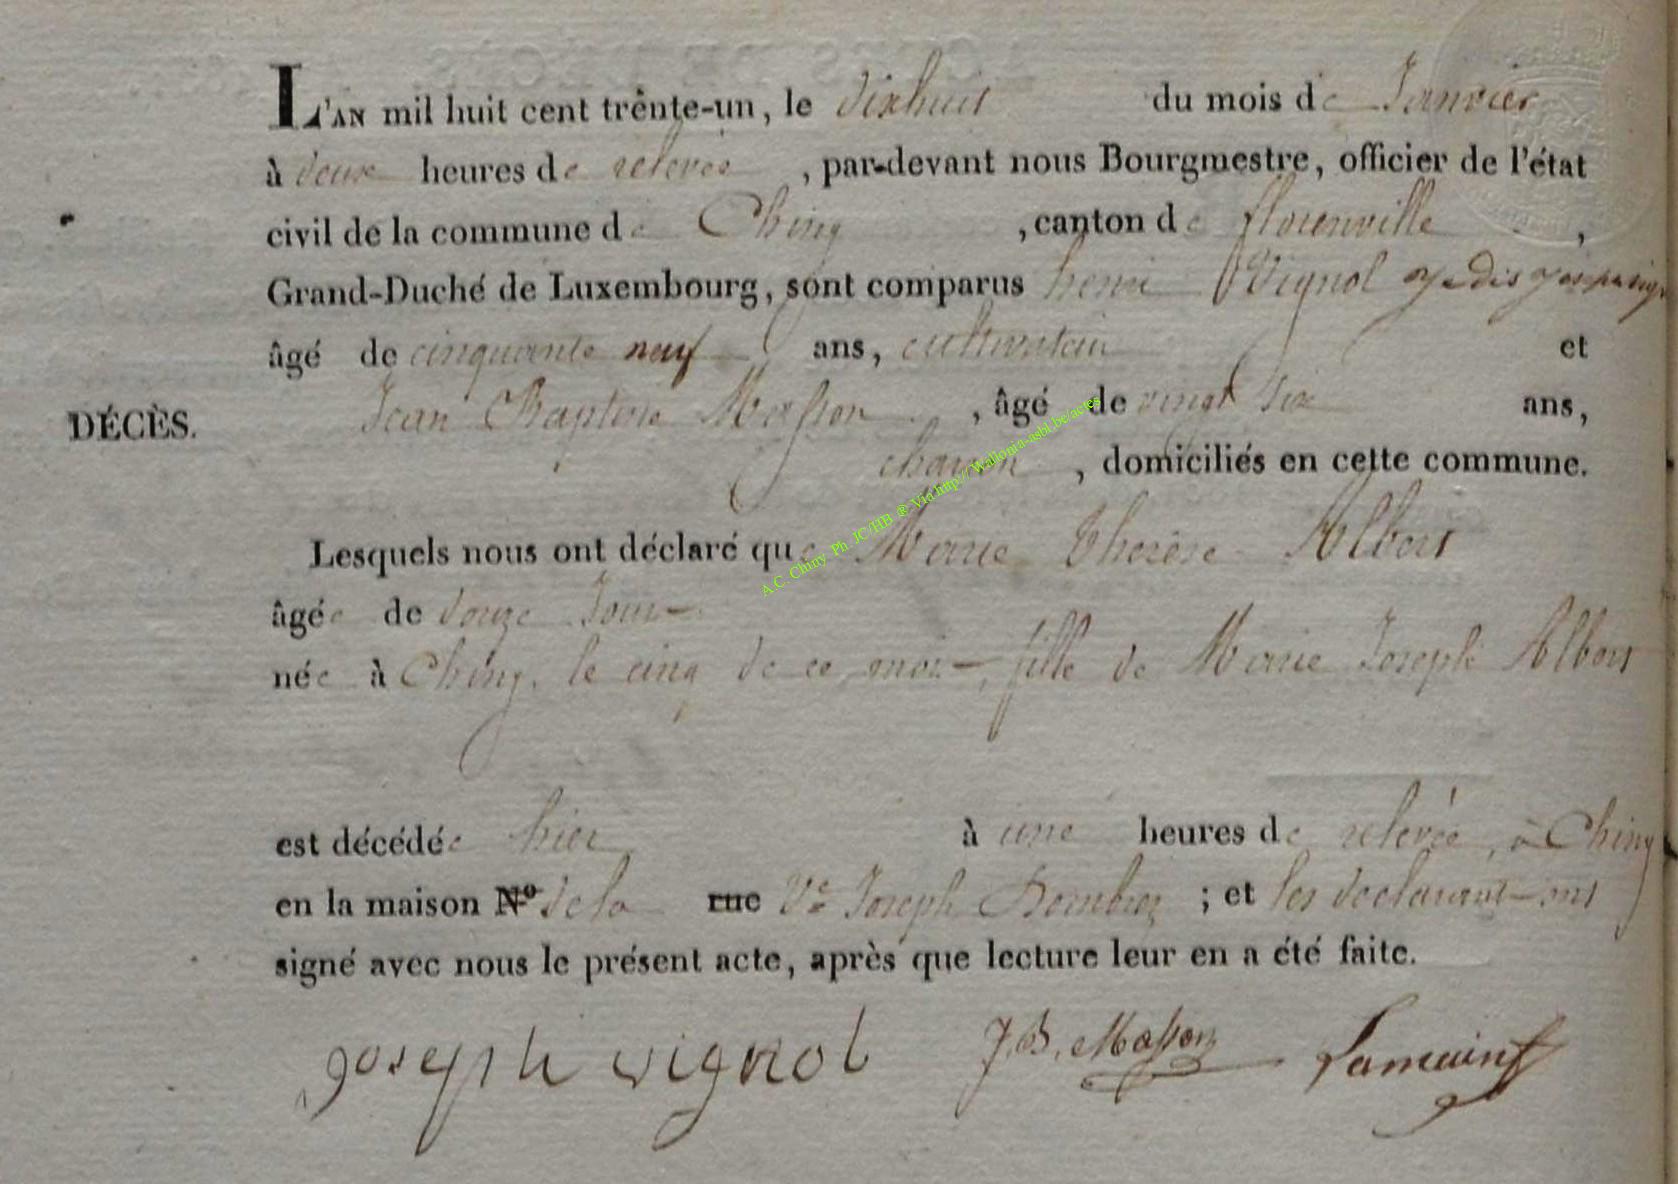 L'AN mil huit cent trente-un, le dixhuit du mois de Janvier
à deux heures de relevée, par-devant nous Bourgmestre, officier de l'état
civil de la commune de Chiny, canton de florenville,
Grand-Duché de Luxembourg, sont comparus henri Vignol
âgé de cinquante neuf ans, cultivateur et
Jean Baptiste Masson, âgé de vingt six ans,
DÉCÈS.
, domiciliés en cette commune.
Lesquels nous ont déclaré que Marie Therèse Albert
âgée de douze Jour
née à Chiny, le cinq de ce mois, fille de Marie Joseph Albert
est décédée hier à une heures de relevée, à Chiny
en la maison N° de la rue Ve Joseph ; et les declarant ont
signé avec nous le présent acte, après que lecture leur en a été faite.
joseph vignol J.B. Masson
A.C. Chiny Ph. JC/HB ® Via http://Wallonia-asbl.be/actes